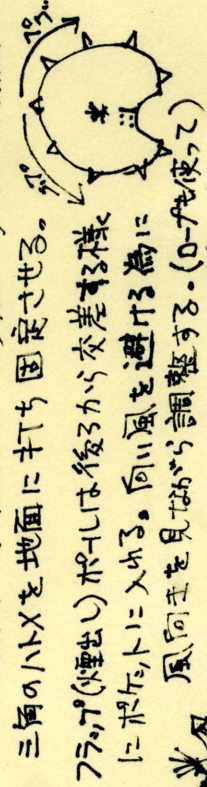 三角のハトメを地面に打ち固定させる。
フラップ(煙出し)ポールは後ろから交差する様
にポケットに入れる。向い風を避ける為に
風向きを見ながら調整する。(ロープも使って)